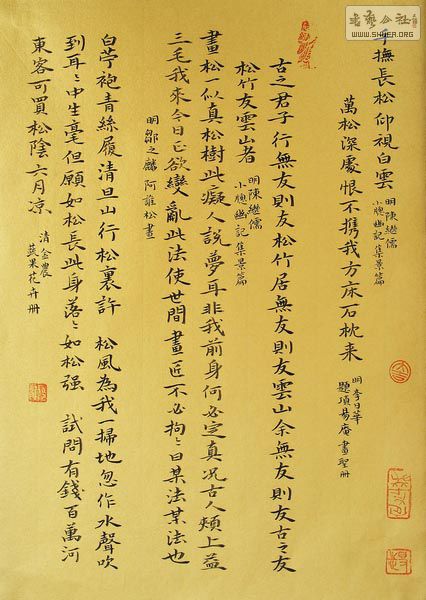 手撫長松仰視白雲
明陳繼儒
小牕幽記集景篇
萬松深處恨不攜我方床石枕来
明李日華
題項易庵畫聖冊
古之君子行無友則友松竹居無友則友雲山余無友則友古之友
松竹友雲山者
明陳繼儒
小牕幽記集景篇
畫松一似真松樹此癡人說夢耳非我前身何必定真况古人頰上益
三毛我来今日正欲變亂此法使世間畫匠不必拘〻曰某法某法也
明鄒之麟 阿誰松畫
白苧袍青絲履清旦山行松裏許 松風為我一掃地忽作水聲吹
到耳〻中生毫但願如松長此身落〻如松强 試問有錢百萬河
東客可買松陰六月凉
清金農
蔬果花卉冊
書藝公社
WWW.SHYER.ORG